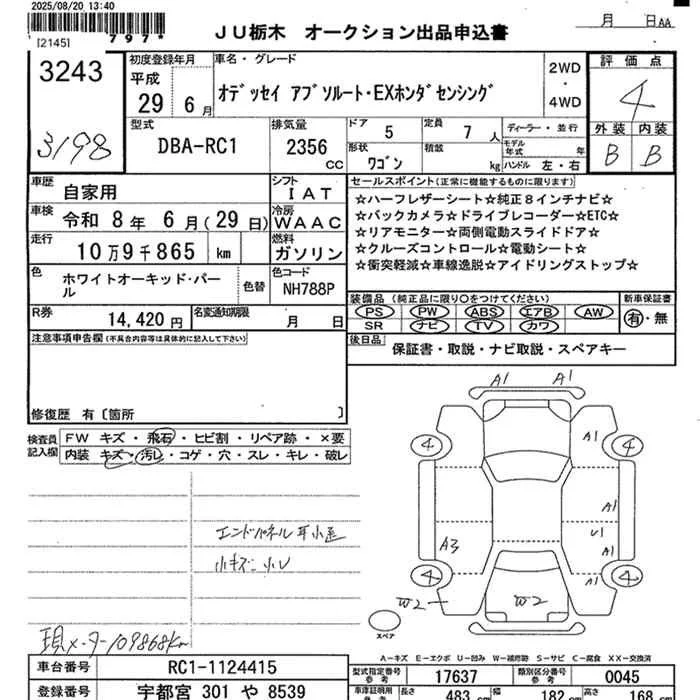 2025/08/20 13:40
[2145]
797*
ＪＵ栃木 オークション出品申込書
月 日 AA
3243
3198
初度登録年月
平成
29 6月
車名・グレード
オデッセイ アブソルート・EXホンダセンシング
2WD
・
4WD
評価点
4
外装 内装
B B
型式
DBA-RC1
排気量
2356
CC
ドア 5
定員 7 人
形状 ワゴン
積載 kg
ディーラー・並行
モデル年式 年
ハンドル 左・右
車歴
自家用
シフト
IAT
車検
令和 8年 6月(29日)
冷房
WAAC
走行
10万9千865 km
燃料
ガソリン
色
ホワイトオーキッド・パール
色替
色コード
NH788P
R券
14,420円
名変通知期限
月 日
セールスポイント(正常に機能するものに限ります)
☆ハーフレザーシート☆純正8インチナビ☆
☆バックカメラ☆ドライブレコーダー☆ETC☆
☆リアモニター☆両側電動スライドドア☆
☆クルーズコントロール☆電動シート☆
☆衝突軽減☆車線逸脱☆アイドリングストップ☆
装備品 (純正品に限り○をつけてください)
新車保証書
PS PW ABS エアB AW
SR ナビ TV カワ
有・無
後日品
保証書・取説・ナビ取説・スペアキー
注意事項申告欄(不具合内容等は具体的に記入して下さい)
修復歴 有〔箇所 〕
検査員記入欄
FW キズ・飛石・ヒビ割・リペア跡・×要
内装 キズ・汚レ・コゲ・穴・スレ・キレ・破レ
A1 A1
4 A1 4
A1
U1
A3 A1
4 A1 4
W2 W2
スペア
小キズ 小U
現メーター109868km
A-キズ E-エクボ U-凹ミ W-補修跡 S-サビ C-腐食 XX-交換済
車台番号
RC1-1124415
型式指定番号 参考
17637
類別区分番号 参考
0045
登録番号
宇都宮 301 や 8539
車庫証明用
長さ 483 cm
幅 182 cm
高さ 168 cm